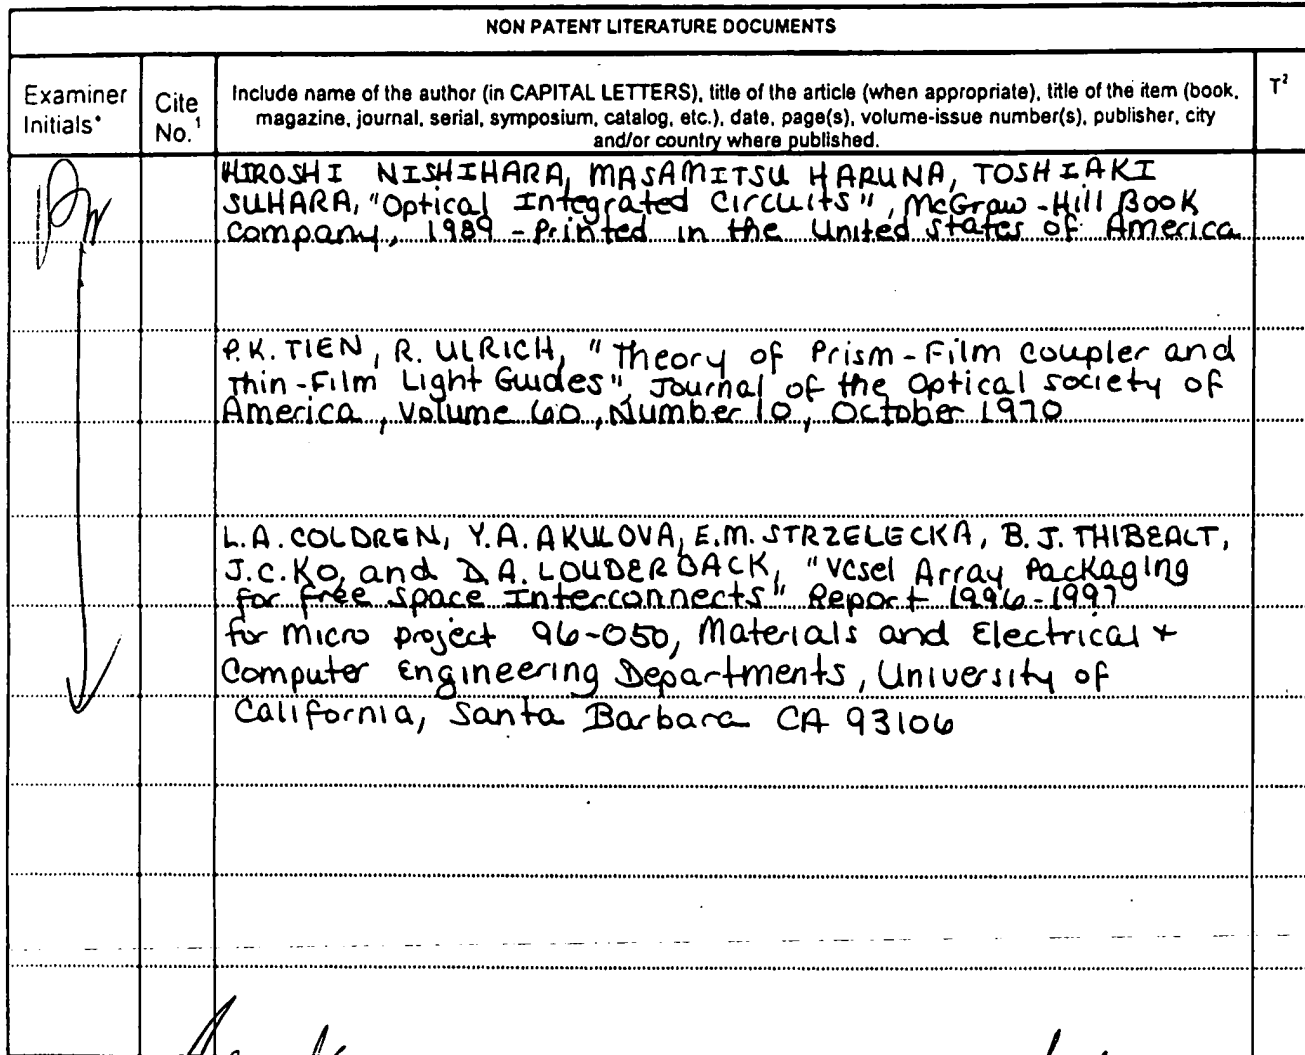 NON PATENT LITERATURE DOCUMENTS
Examiner Initials*
Cite No.¹
Include name of the author (in CAPITAL LETTERS), title of the article (when appropriate), title of the item (book,
magazine, journal, serial, symposium, catalog, etc.), date, page(s), volume-issue number(s), publisher, city
and/or country where published.
T²
HIROSHI NISHIHARA, MASAMITSU HARUNA, TOSHIAKI
SUHARA, "Optical Integrated Circuits", McGraw-Hill Book
Company, 1989 - Printed in the United States of America
P.K. TIEN, R. ULRICH, "Theory of Prism-Film Coupler and
Thin-Film Light Guides", Journal of the Optical Society of
America, Volume 60, Number 10, October 1970
L.A. COLDREN, Y.A. AKULOVA, E.M. STRZELECKA, B.J. THIBEALT,
J.C. KO, and D.A. LOUDERBACK, "Vcsel Array Packaging
for free space Interconnects" Report 1996-1997
for micro project 96-050, Materials and Electrical +
Computer Engineering Departments, University of
California, Santa Barbara CA 93106